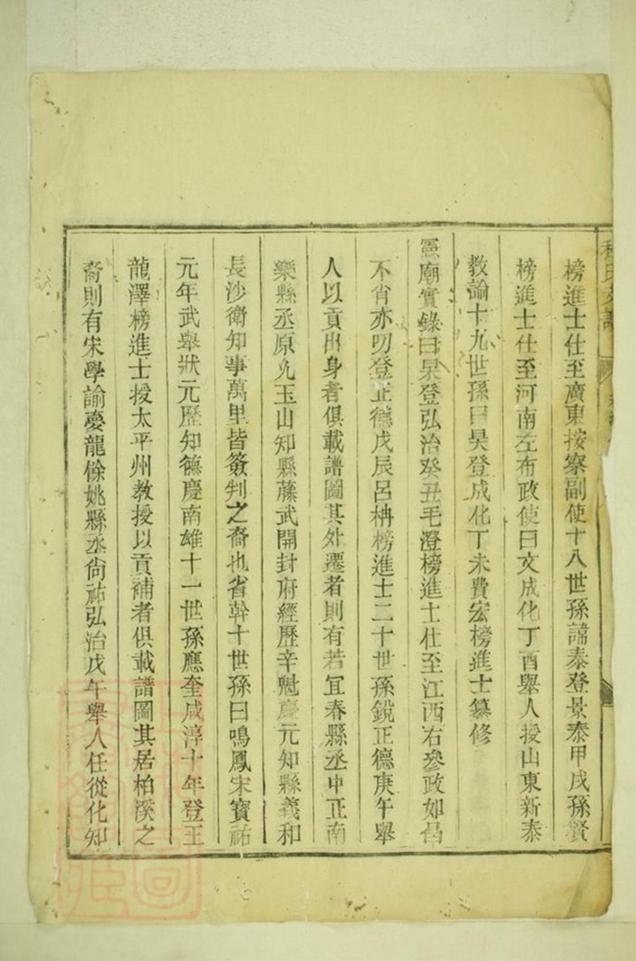 榜進士仕至廣東按察副使十八世孫諱泰登景泰甲戌孫賢
榜進士仕至河南左布政使曰文成化丁酉舉人授山東新泰
教諭十九世孫曰昊登成化丁未費宏榜進士纂修
憲廟實錄曰杲登弘治癸丑毛澄榜進士仕至江西右參政如昌
不肖亦叨登正德戊辰呂柟榜進士二十世孫銳正德庚午舉
人以貢出身者俱載譜圖其外遷者則有若宜春縣丞中正南
樂縣丞原允玉山知縣蕃武開封府經歷辛魁慶元知縣義和
長沙衛知事萬里皆簽判之裔也省幹十世孫曰鳴鳳宋寶祐
元年武舉狀元歷知德慶南雄十一世孫應奎咸淳十年登王
龍澤榜進士授太平州教授以貢補者俱載譜圖其居柏溪之
裔則有宋學諭慶龍餘姚縣丞尚祐弘治戊午舉人任從化知